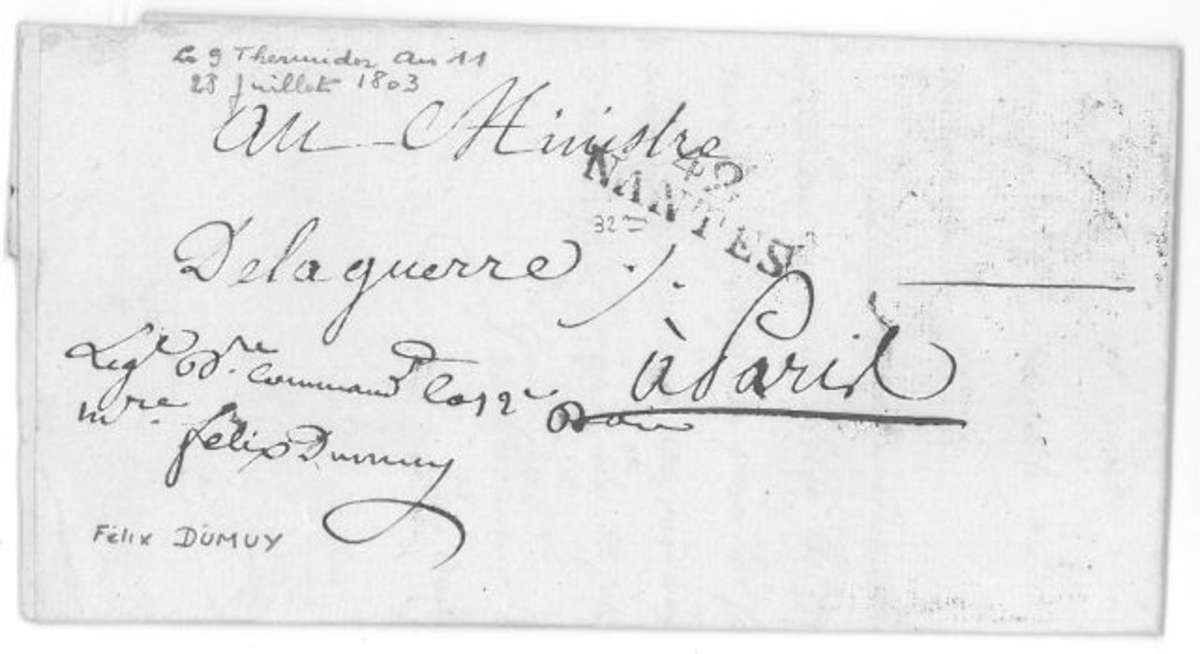 Le 9 Thermidor An 11
28 Juillet 1803
au Ministre
42
NANTES
32
Delaguerre
à Paris
Le gl. command la 12e
mre
félix Dumuy
Félix DUMUY